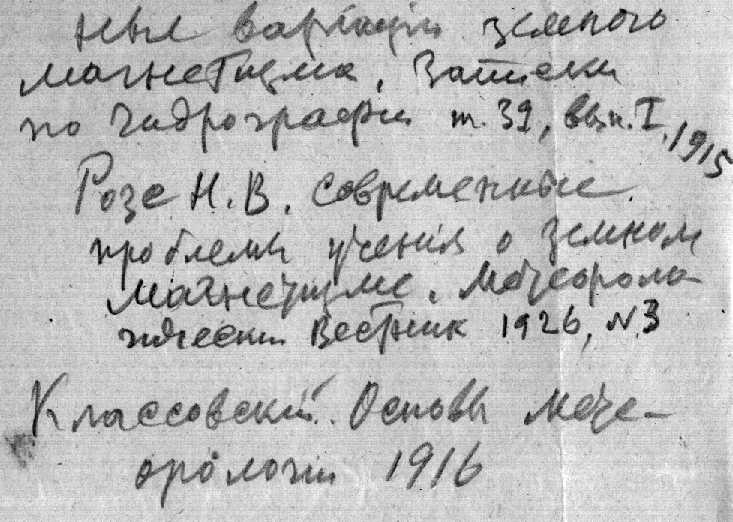 ные вариации земного
магнетизма, Записки
по гидрографии т. 39, вып. I, 1915
Розе Н.В. Современные
проблемы учения о земном
магнетизме. Метеороло-
гический Вестник 1926, N. 3
Клоссовский. Основы мете-
орологии 1916